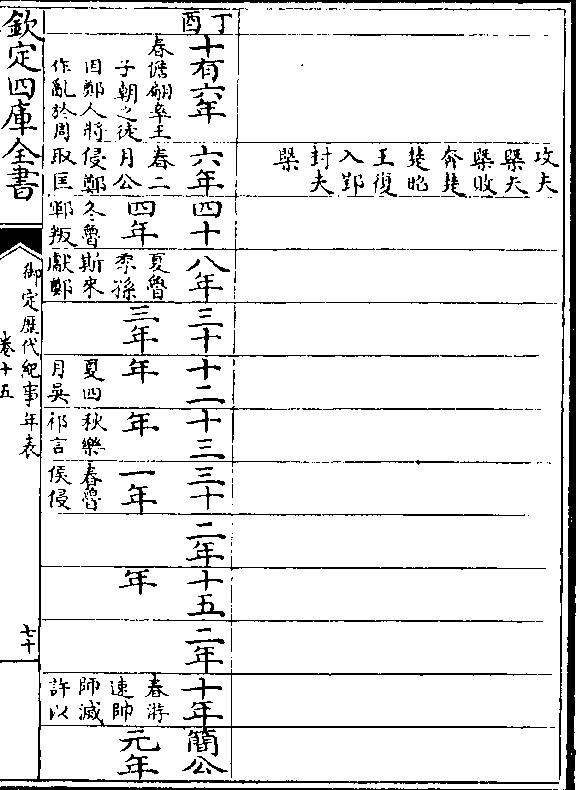 攻夫
槩夫
槩敗
奔楚
楚昭
王復
入郢
封夫
槩
丁酉
十有六年
春儋翩率王
子朝之徒
因鄭人將
作亂於周
六年
春二
月公
侵鄭
取匡
四十
四年
冬魯
鄆叛
八年
夏魯
季孫
斯來
獻鄭
三十
三年
十二
年
夏四
月吳
十三
年
秋樂
祁言
三十
一年
春魯
侯侵
二年
十五
年
二年
十年
春游
速帥
師滅
許以
簡公
元年
欽定四庫全書
御定歷代紀事年表
卷十五
七十